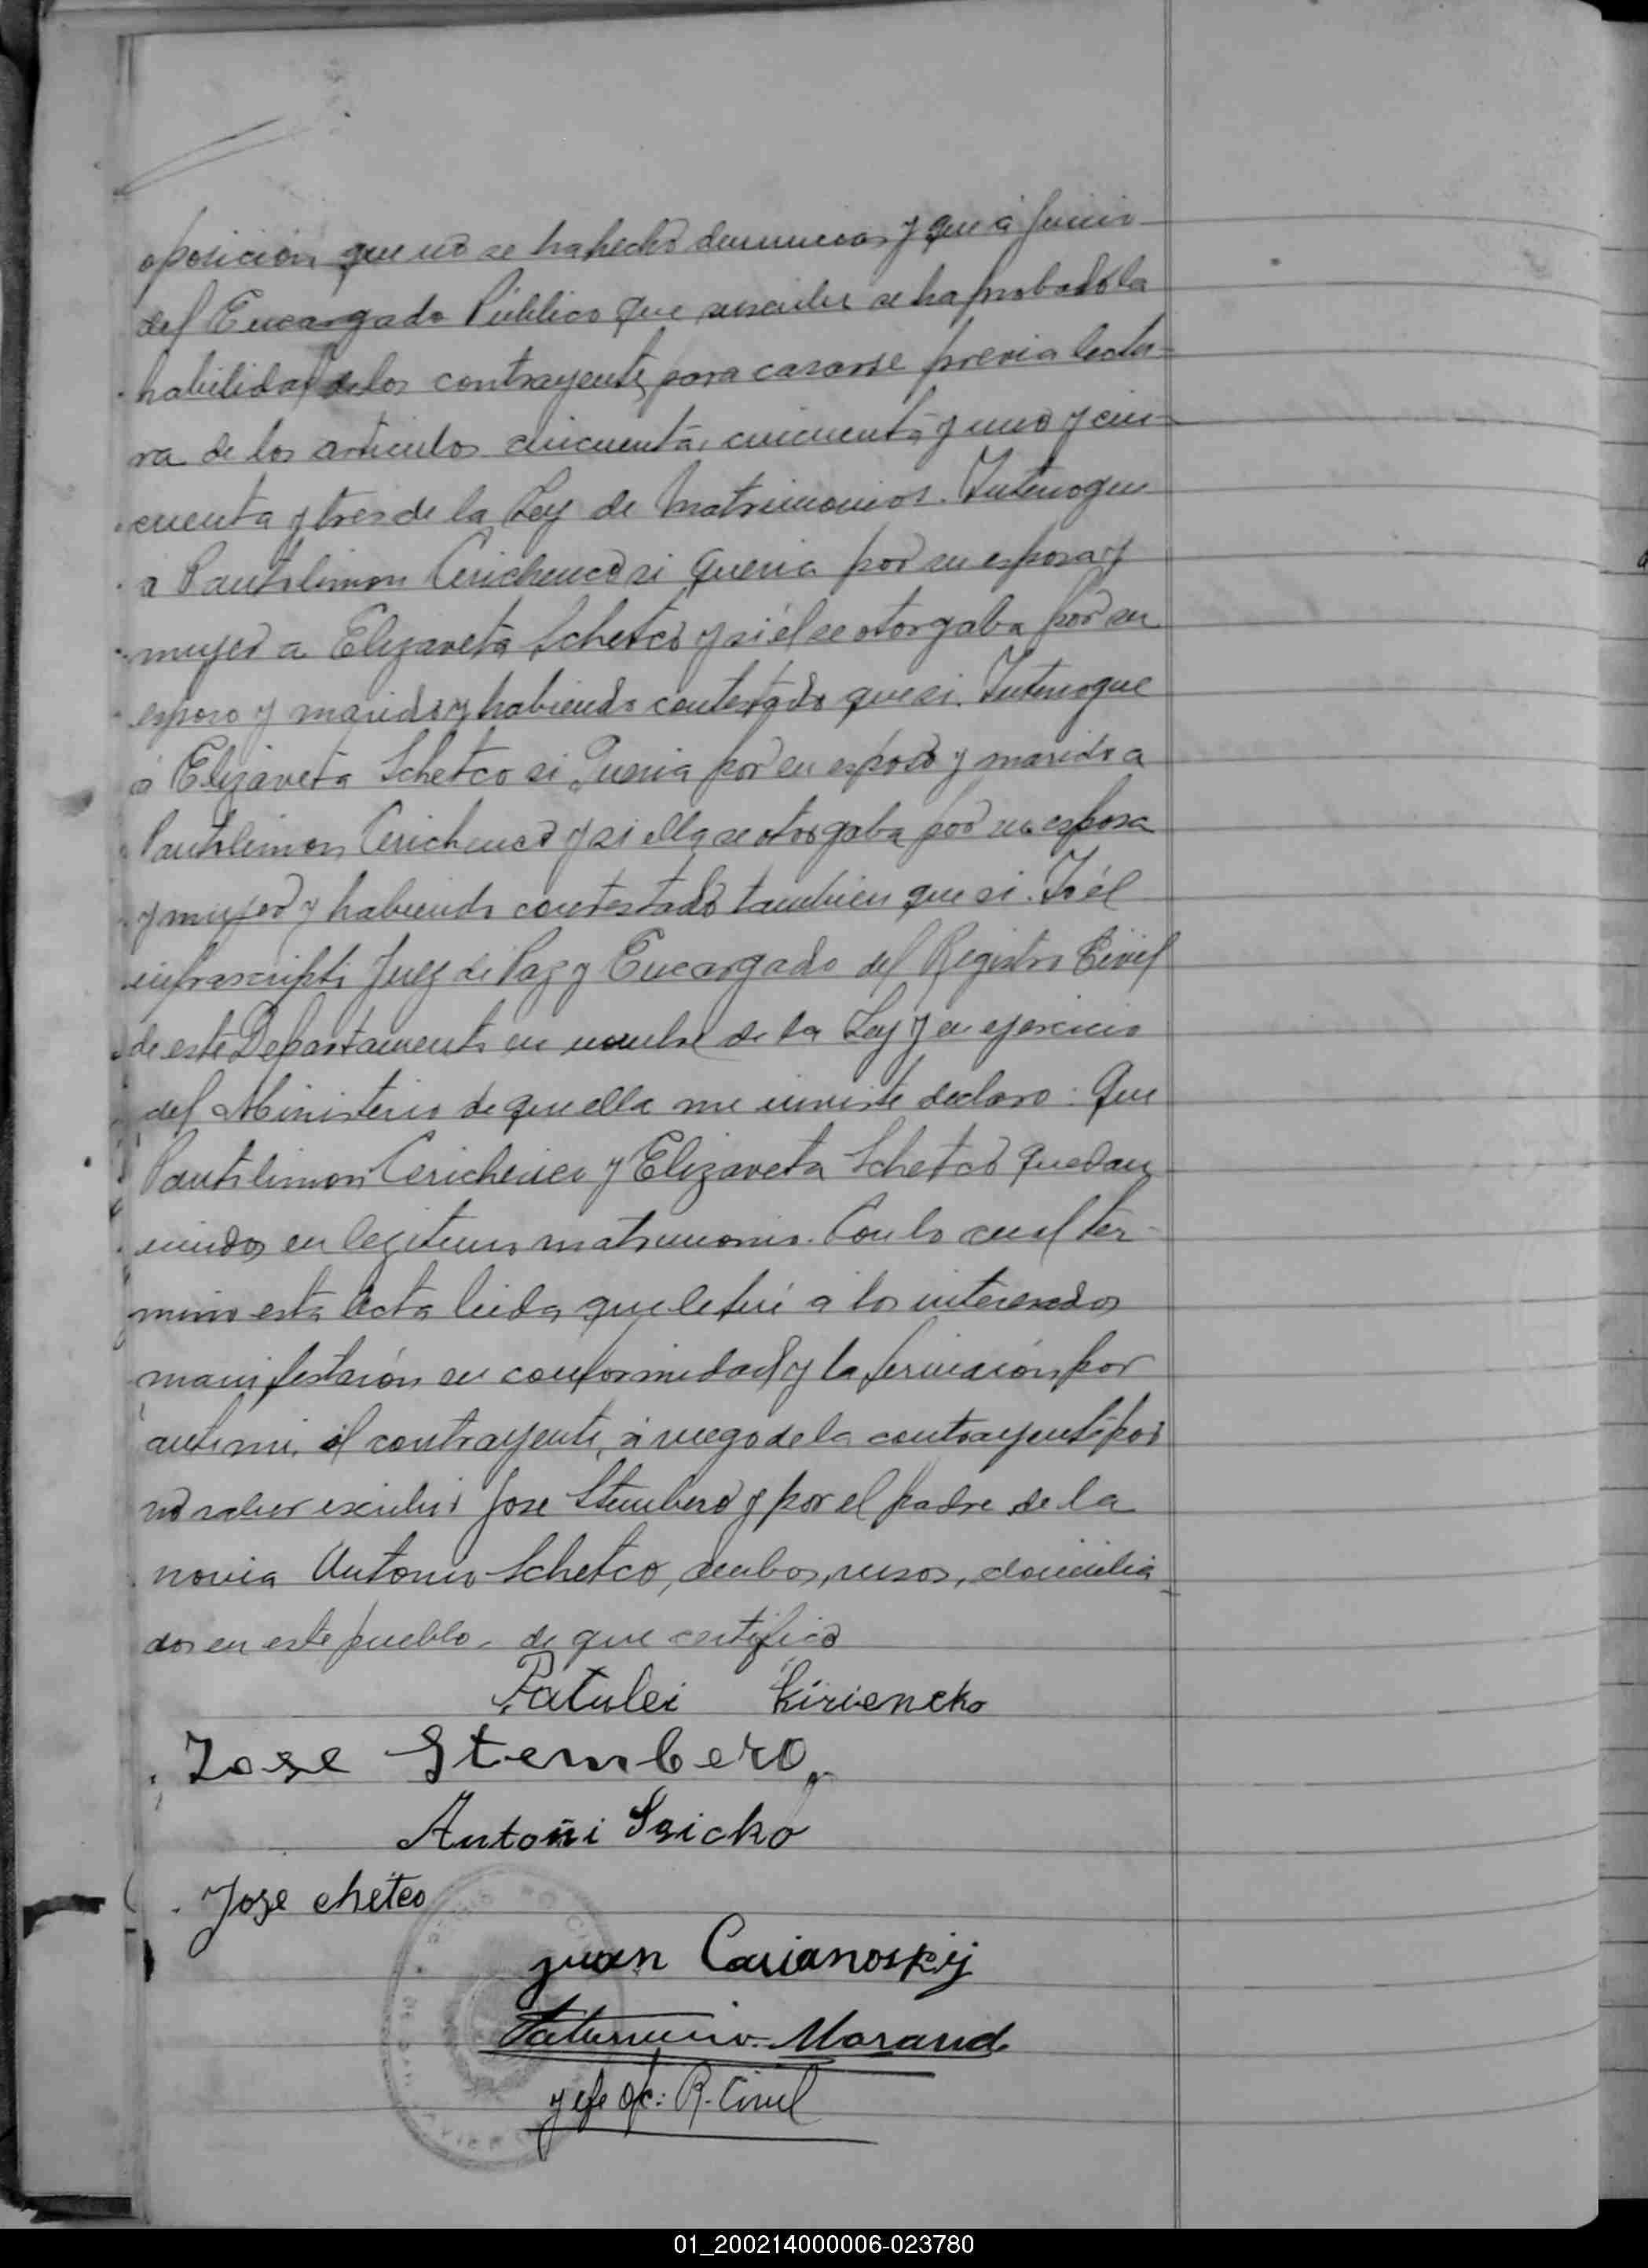 oposición que no se ha hecho denuncias y que á Juicio
del Encargado Público que suscribe se ha probado la
habilidad de los contrayentes para casarse previa lectu-
ra de los articulos cincuenta, cincuenta y uno y cin-
cuenta y tres de la Ley de Matrimonios. Interogue
a Pantilimon Cerichenco si queria por su esposa y
mujer a Elizaveta Schetco y si él se otorgaba por su
esposo y marido y habiendo contestado que si. Interogue
á Elizaveta Schetco si queria por su esposo y marido a
Pantilimon Cerichenco y si ella se otorgaba por su esposa
y mujer y habiendo contestado tambien que si. Yo él
infrascripto Juez de Paz y Encargado del Registro Civil
de este Departamento en nombre de la Ley y en ejercicio
del Ministerio de que ella me inviste declaro: Que
Pantilimon Cerichenco y Elizaveta Schetco quedan
unidos en legitimo matrimonio. Con lo cual ter-
mino esta acta leida que le fué a los interesados
manifestarón su conformidad y la firmarón por
ante mi, el contrayente, á ruego de la contrayente por
no saber escribir Jose Stembero y por el padre de la
novia Antonio Schetco, ambos, rusos, domicilia-
dos en este pueblo, de que certifico
Patulei Kiriencko
Jose Stembero
Antoni Szicko
Jose cheteo
juan Carianoskij
Saturnino Morand
y efe ofc: R. Civil
01_200214000006-023780